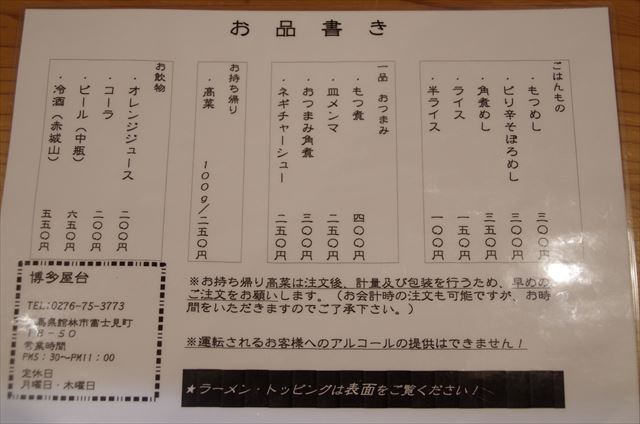 お品書き
ごはんもの
・もつめし 三〇〇円
・ピリ辛そぼろめし 三〇〇円
・角煮めし 三五〇円
・ライス 一五〇円
・半ライス 一〇〇円
一品 おつまみ
・もつ煮 四〇〇円
・皿メンマ 二五〇円
・おつまみ角煮 三〇〇円
・ネギチャーシュー 二五〇円
お持ち帰り
・高菜 100g/二五〇円
お飲物
・オレンジジュース 二〇〇円
・コーラ 二〇〇円
・ビール(中瓶) 六五〇円
・冷酒(赤城山) 五五〇円
※お持ち帰り高菜は注文後、計量及び包装を行うため、早めの
ご注文をお願いします。(お会計時の注文も可能ですが、お時
間をいただきますのでご了承下さい。)
※運転されるお客様へのアルコールの提供はできません!
★ラーメン・トッピングは表面をご覧ください!
博多屋台
TEL:0276-75-3773
馬県館林市富士見町
8-50
営業時間
PM5:30~PM11:00
定休日
月曜日・木曜日